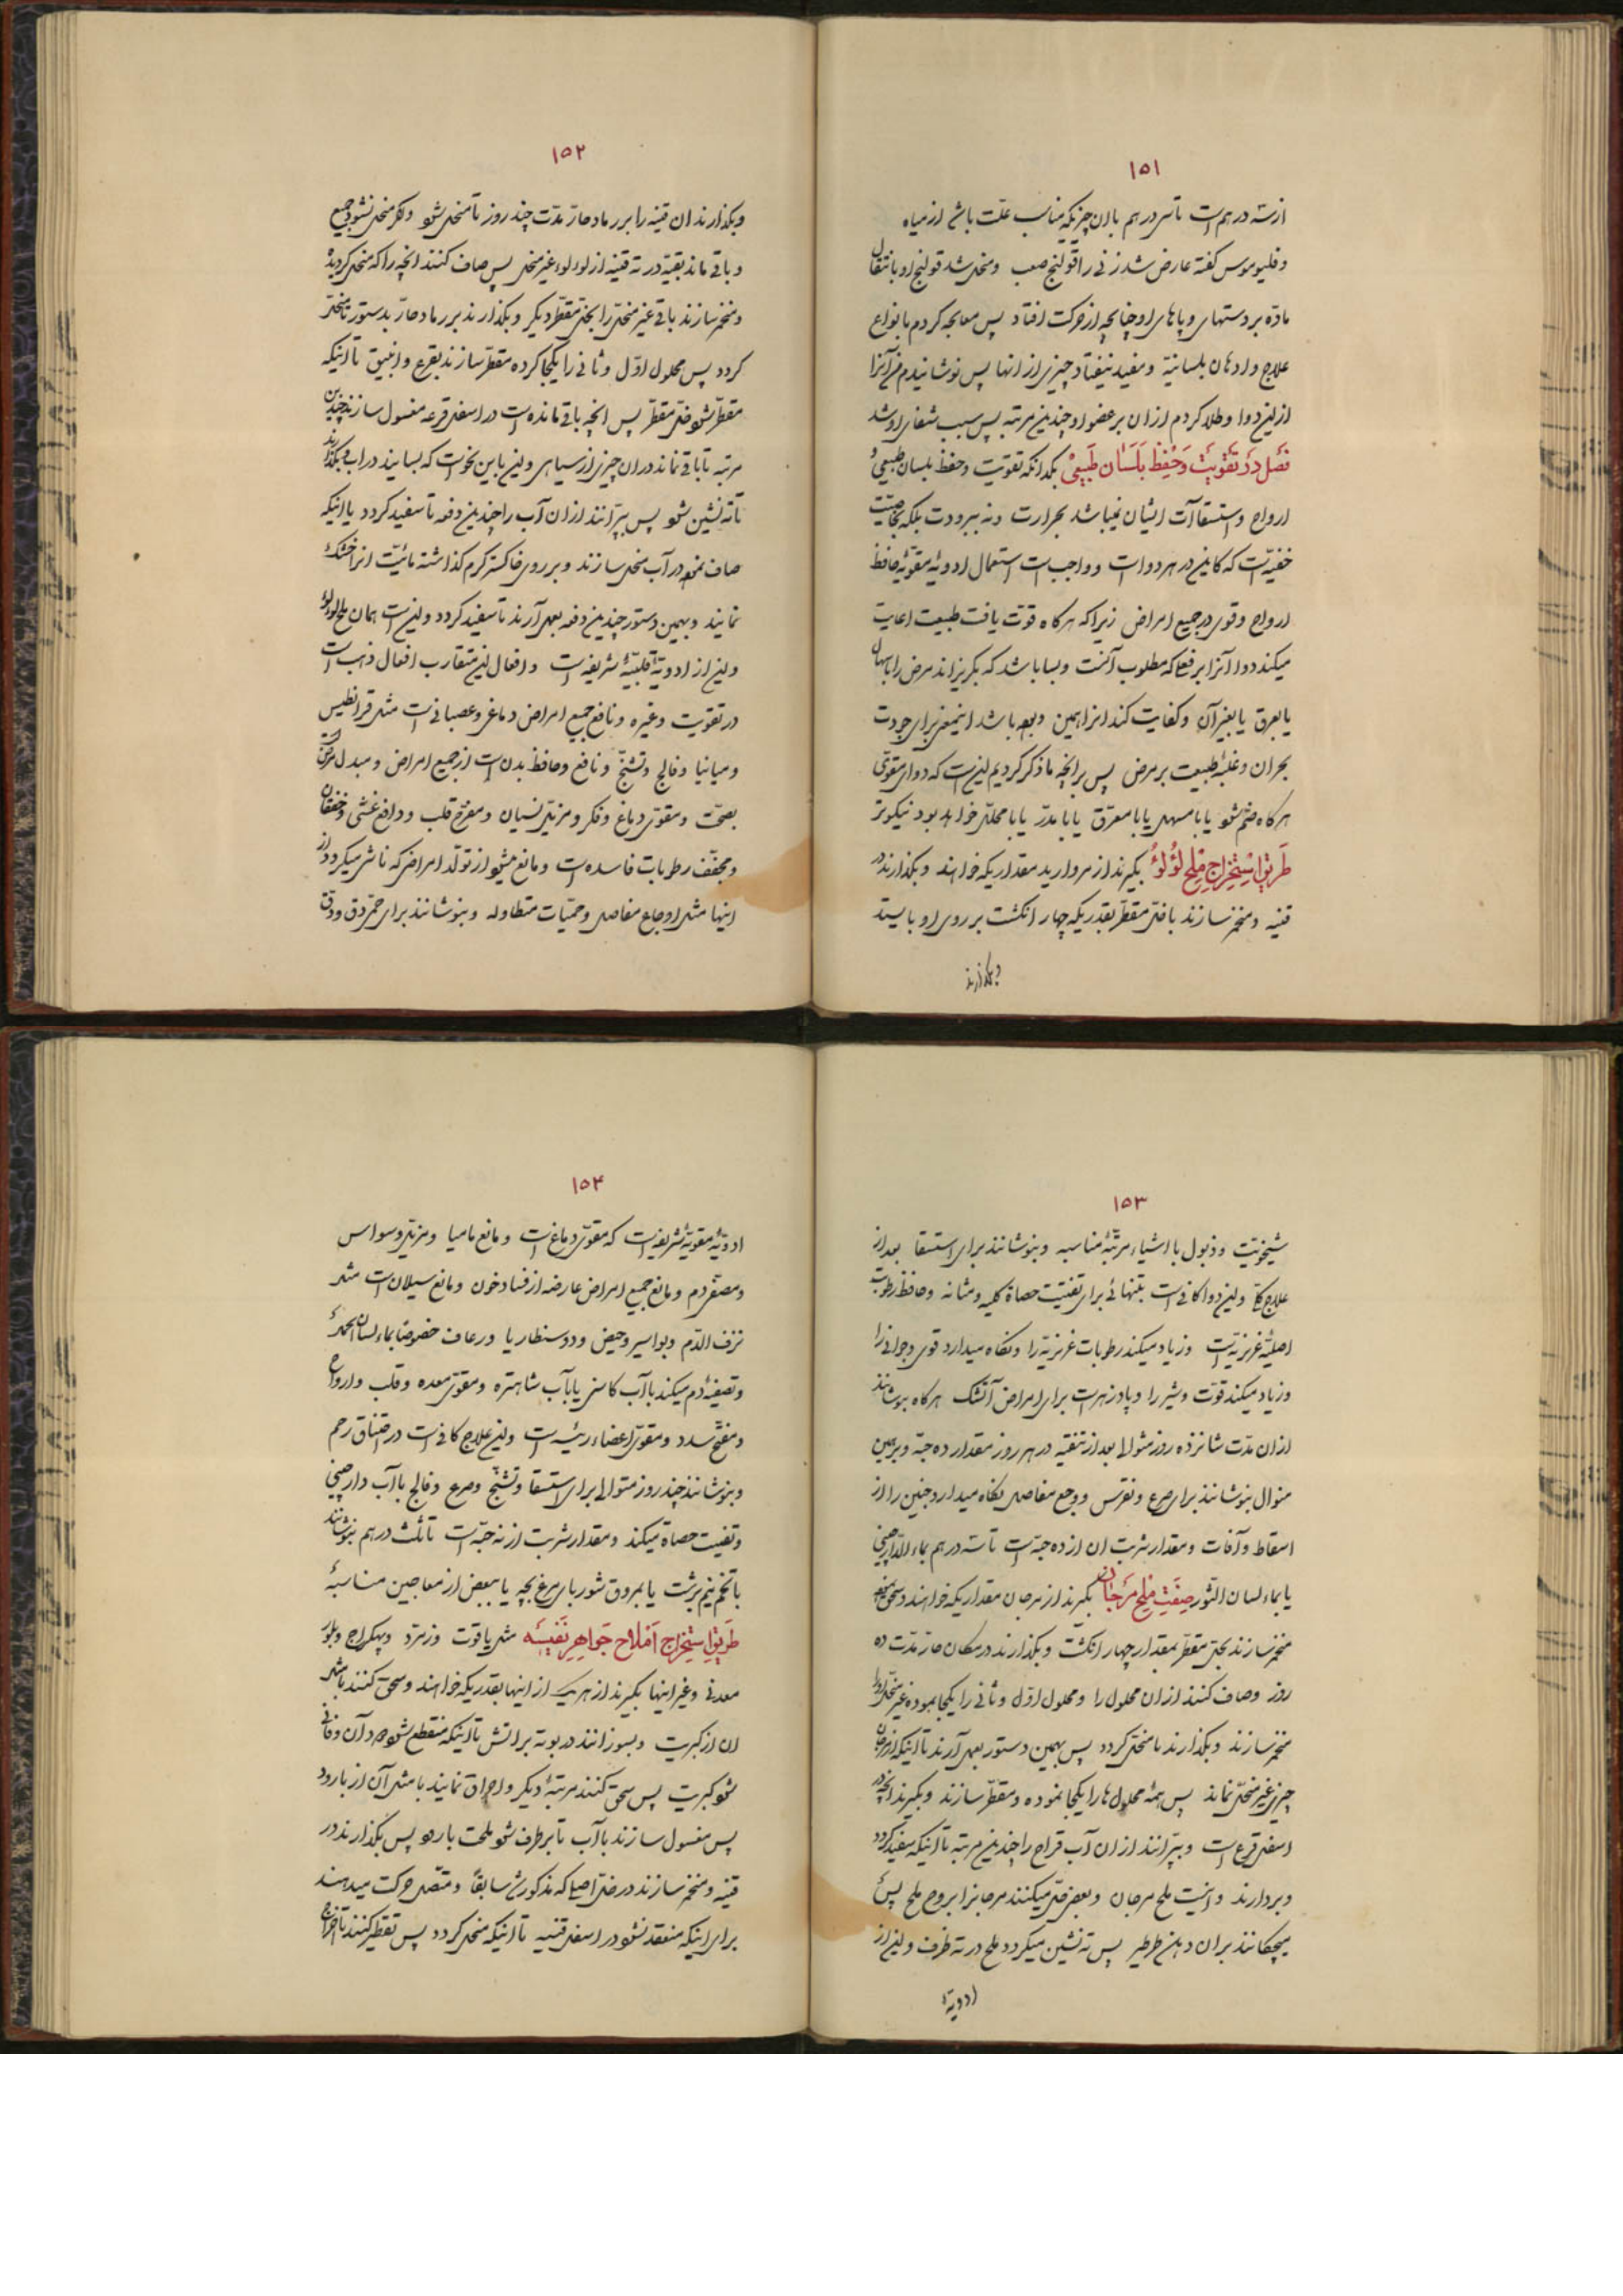 ١٥١
از سه درهم است تا سی درهم با آن چیزیکه مناسب علّت باشد از میاه
و فلیوموس گفته عارض شد زنی را قولنج صعب و منحل شد قولنج او بانتقال
مادّه بر دستهای و پاهای او چنانچه از حرکت افتاد پس معالجه کردم بانواع
علاج و ادهان بلسانیّه و مفید نیفتاد چیزی از انها پس نوشانیدم من آنرا
ازین دوا و طلا کردم ازان بر عضو او چندین مرتبه پس سبب شفای او شد
فصل در تقویت و حفظ بلسان طبیعی بدانکه تقویت و حفظ بلسان طبیعی و
ارواح و استسقاآت ایشان نمیباشد بحرارت و نه ببرودت بلکه بخاصیّت
خفیّه است که کاینی در هر دواست و واجب است استعمال ادویه مقوّیه حافظ
ارواح و قوی در جمیع امراض زیراکه هرگاه قوّت یافت طبیعت اعانت
میکند دوا آنرا بر فعلی که مطلوب آنست و بسا باشد که بگریزاند مرض را باسهال
یا بعرق یا بغیر آن و کفایت کند انرا همین و بوده باشد اینمعنی برای جودت
بحران و غلبه طبیعت بر مرض پس بر انچه ما ذکر کردیم این است که دوای مقوّی
هرگاه ضم شود یا با مسهل یا با معرّق یا با مدرّ یا با محلّل خواهد بود نیکوتر
طریق استخراج ملح لؤلؤ بگیرند از مروارید مقداریکه خواهند و بگذارند در
قنینه و منخمر سازند با خلّ مقطّر بقدریکه چهار انگشت بر روی او بایستد
و بگذارند
١٥٢
و بگذارند ان قنینه را بر رماد حارّ مدّت چند روز تا منحل شود و اگر منحل نشود جمیع
و باقی ماند بقیّه در ته قنینه از لؤلؤ غیر منحل پس صاف کنند انچه را که منحل گردیده
و منخمر سازند باقی غیر منحل را بخلّ مقطّر دیگر و بگذارند بر رماد حارّ بدستور تا منحل
گردد پس محلول اوّل و ثانی را یکجا کرده مقطّر سازند بقرع و انبیق تا اینکه
مقطّر شود خلّ مقطّر پس انچه باقی مانده است در اسفل قرعه مغسول سازند چندین
مرتبه تا باقی نماند دران چیزی از سیاهی و این باین نحو است که بسایند در اب و بگذارند
تا ته نشین شود پس بپرانند ازان آب را چندین دفعه تا سفید گردد یا اینکه
صاف نموده در آب منحل سازند و بر روی خاکستر گرم گذاشته مائیّت انرا خشک
نمایند و بهمین دستور چندین دفعه بعمل آرند تا سفید گردد و این است همان ملح لؤلؤ
و این از ادویهٔ قلبیّهٔ شریفه است و افعال این متقارب افعال ذهب است
در تقویت و غیره و نافع جمیع امراض دماغی و عصبانی است مثل قرانیطس
و مانیا و فالج و تشنّج و نافع و حافظ بدن است از جمیع امراض و مبدل مرض
بصحّت و مقوّی دماغ و فکر و مزیل نسیان و مفرّح قلب و دافع غشی و خفقان
و مجفّف رطوبات فاسده است و مانع میشود از تولّد امراضی که ناشی میگردد از
اینها مثل اوجاع مفاصل و حمّیات متطاوله و بنوشانند برای حمّی دق و دق
١٥٣
شیخوخیّت و ذبول با اشیاء مرتّبهٔ مناسبه و بنوشانند برای استسقا بعد از
علاج کلّی و این دوا کافی است بتنهائی برای تفتیت حصاة کلیه و مثانه و حافظ رطوبت
اصلیّه غریزیّه است و زیاد میکند رطوبات غریزیّه را و نگاه میدارد قوی و جوانی را
و زیاد میکند قوّت و شیر را و پادزهر است برای امراض آتشک هرگاه بنوشانند
ازان مدّت شانزده روز متوالی بعد از تنقیه در هر روز مقدار ده حبّه و برین
منوال بنوشانند برای صرع و نقرس و وجع مفاصل نگاه میدارد جنین را از
اسقاط و آفات و مقدار شربت ان از ده حبّه است تا سه درهم بماء الدارچینی
یا بماء لسان الثور صفت ملح مرجان بگیرند از مرجان مقداریکه خواهند و سحق نموده
منخمر سازند بخلّ مقطّر بمقدار چهار انگشت و بگذارند در مکان حارّ مدّت ده
روز و صاف کنند ازان محلول را و محلول اوّل و ثانی را یکجا نموده غیر منحل را
منخمر سازند و بگذارند تا منحل گردد پس بهمین دستور بعمل آرند تا اینکه از مرجان
چیزی غیر منحل نماند پس همهٔ محلول ها را یکجا نموده و مقطّر سازند و بگیرند انچه در
اسفل قرع است و بپرانند ازان آب قراح را چندین مرتبه تا اینکه سفید گردد
و بردارند و اینست ملح مرجان و بعضی حلّ میکنند مرجانرا بروح ملح پس
میچکانند بران دهن طرطیر پس ته نشین میگردد ملح در ته ظرف و این از
ادویهٔ
١٥٤
ادویهٔ مقویهٔ شریفه است که مقوّی دماغ است و مانع مانیا و مزیل وسواس
و مصفّی دم و مانع جمیع امراض عارضه از فساد خون و مانع سیلان است مثل
نزف الدّم و بواسیر و حیض و دوسنطاریا و رعاف خصوصاً بماء لسان الحمل
و تصفیهٔ دم میکند با آب کاسنی یا با آب شاهتره و مقوّی معده و قلب و ارواح
و مفتّح سدد و مقوّی اعضاء رئیسه است و این علاج کافی است در اختناق رحم
و بنوشانند چند روز متوالی برای استسقا و تشنّج و صرع و فالج با آب دارچینی
و تفتیت حصاة میکند و مقدار شربت از نه حبّه است تا ثلث درهم بنوشانند
با تخم نیم برشت یا بمروق شوربای مرغ بچه یا ببعضی از معاجین مناسبهٔ
طریق استخراج املاح جواهر نفیسه مثل یاقوت و زمرّد و پهکراج و بلور
معدنی و غیر اینها بگیرند از هر یک از اینها بقدریکه خواهند و سحق کنند با مثل
ان از کبریت و بسوزانند در بوته بر اتش تا اینکه منقطع شود دود آن و فانی
شود کبریت پس سحق کنند مرتبهٔ دیگر و احراق نمایند با مثل آن از بارود
پس مغسول سازند با آب تا برطرف شود ملحیت بارود پس بگذارند در
قنینه و منخمر سازند در خلّ اصلی که مذکور شد سابقاً و متّصل حرکت میدهند
برای اینکه منعقد نشود در اسفل قنینه تا اینکه منحل گردد پس تقطیر کنند تا